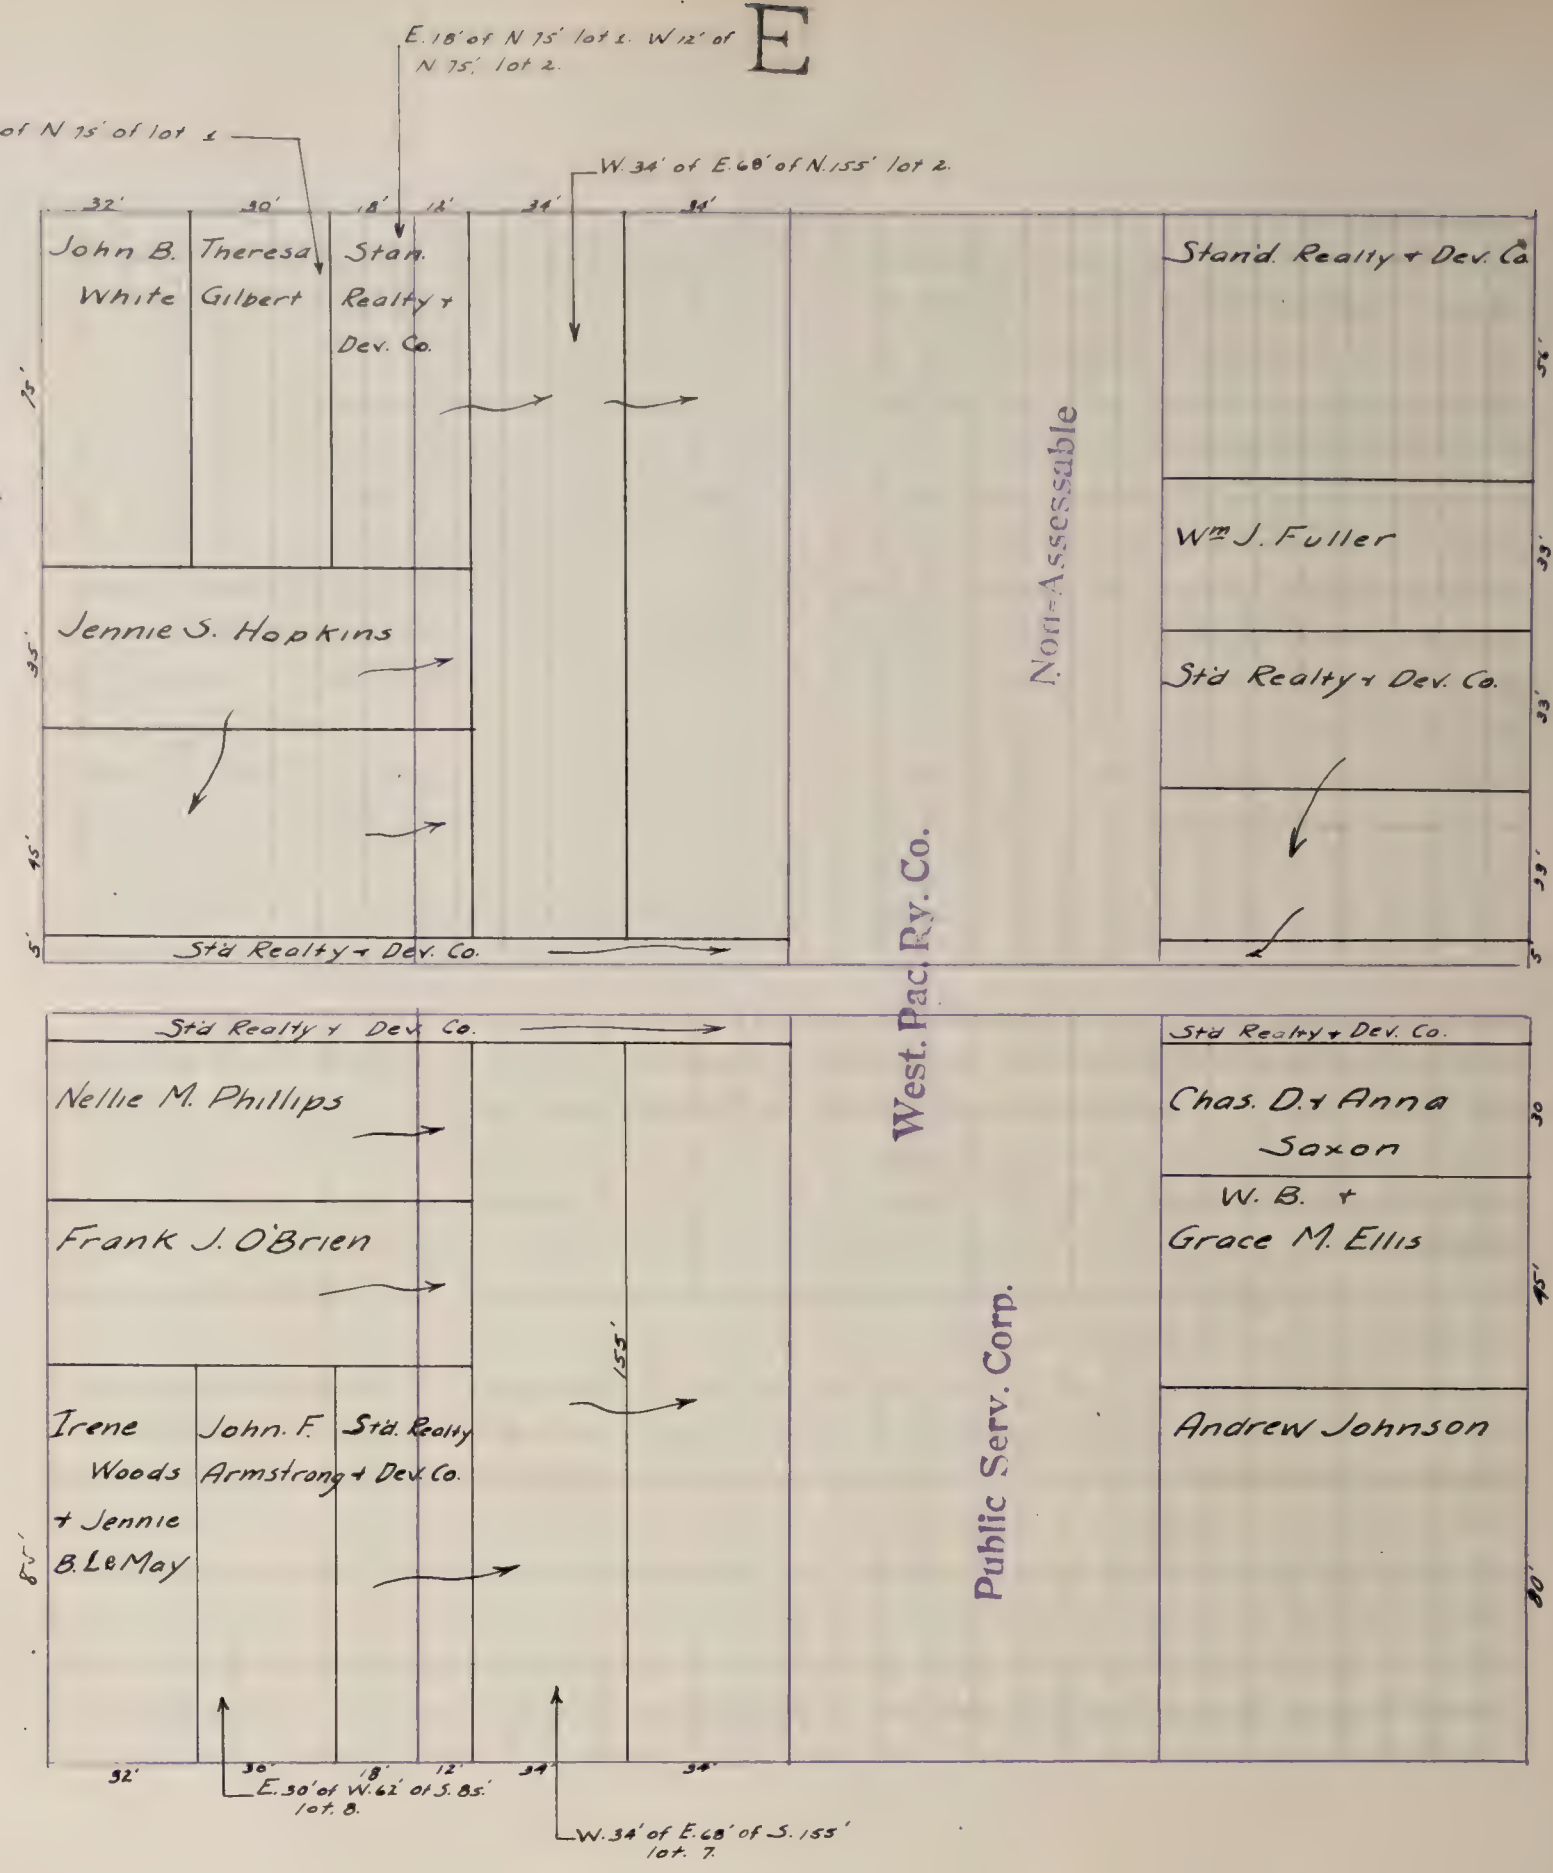 E
E. 18' of N 75' lot 1. W 12' of
N 75', lot 2.
of N 75' of lot 1
W. 34' of E. 68' of N. 155' lot 2.
32' 30' 18' 12' 34' 34'
John B.
White
Theresa
Gilbert
Stan.
Realty +
Dev. Co.
75'
Stan'd. Realty + Dev. Co
56'
Non-Assessable
Wm J. Fuller
33'
Jennie S. Hopkins
35'
St'd Realty + Dev. Co.
33'
45'
33'
5'
Std Realty + Dev. Co.
5'
West. Pac. Ry. Co.
Std Realty + Dev. Co.
Std Realty + Dev. Co.
Nellie M. Phillips
Chas. D. + Anna
Saxon
30
Frank J. O'Brien
W. B. +
Grace M. Ellis
45'
155'
Public Serv. Corp.
Irene
Woods
+ Jennie
B. LeMay
John. F.
Armstrong
Std. Realty
+ Dev. Co.
85'
Andrew Johnson
80'
32' 30' 18' 12' 34' 34'
E. 30' of W. 62' of S. 85'
lot. 8.
W. 34' of E. 68' of S. 155'
lot. 7.